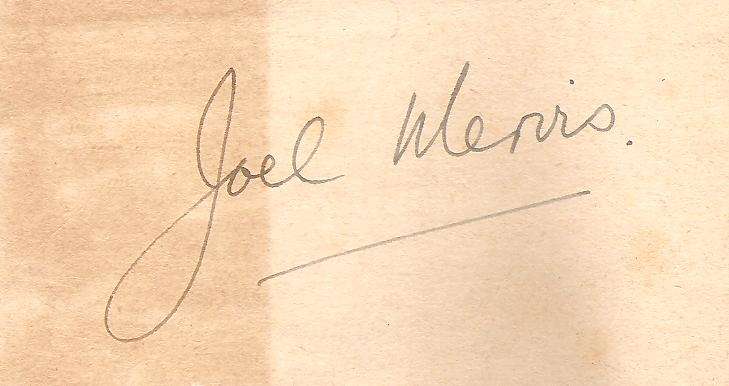 Joel Mervis.